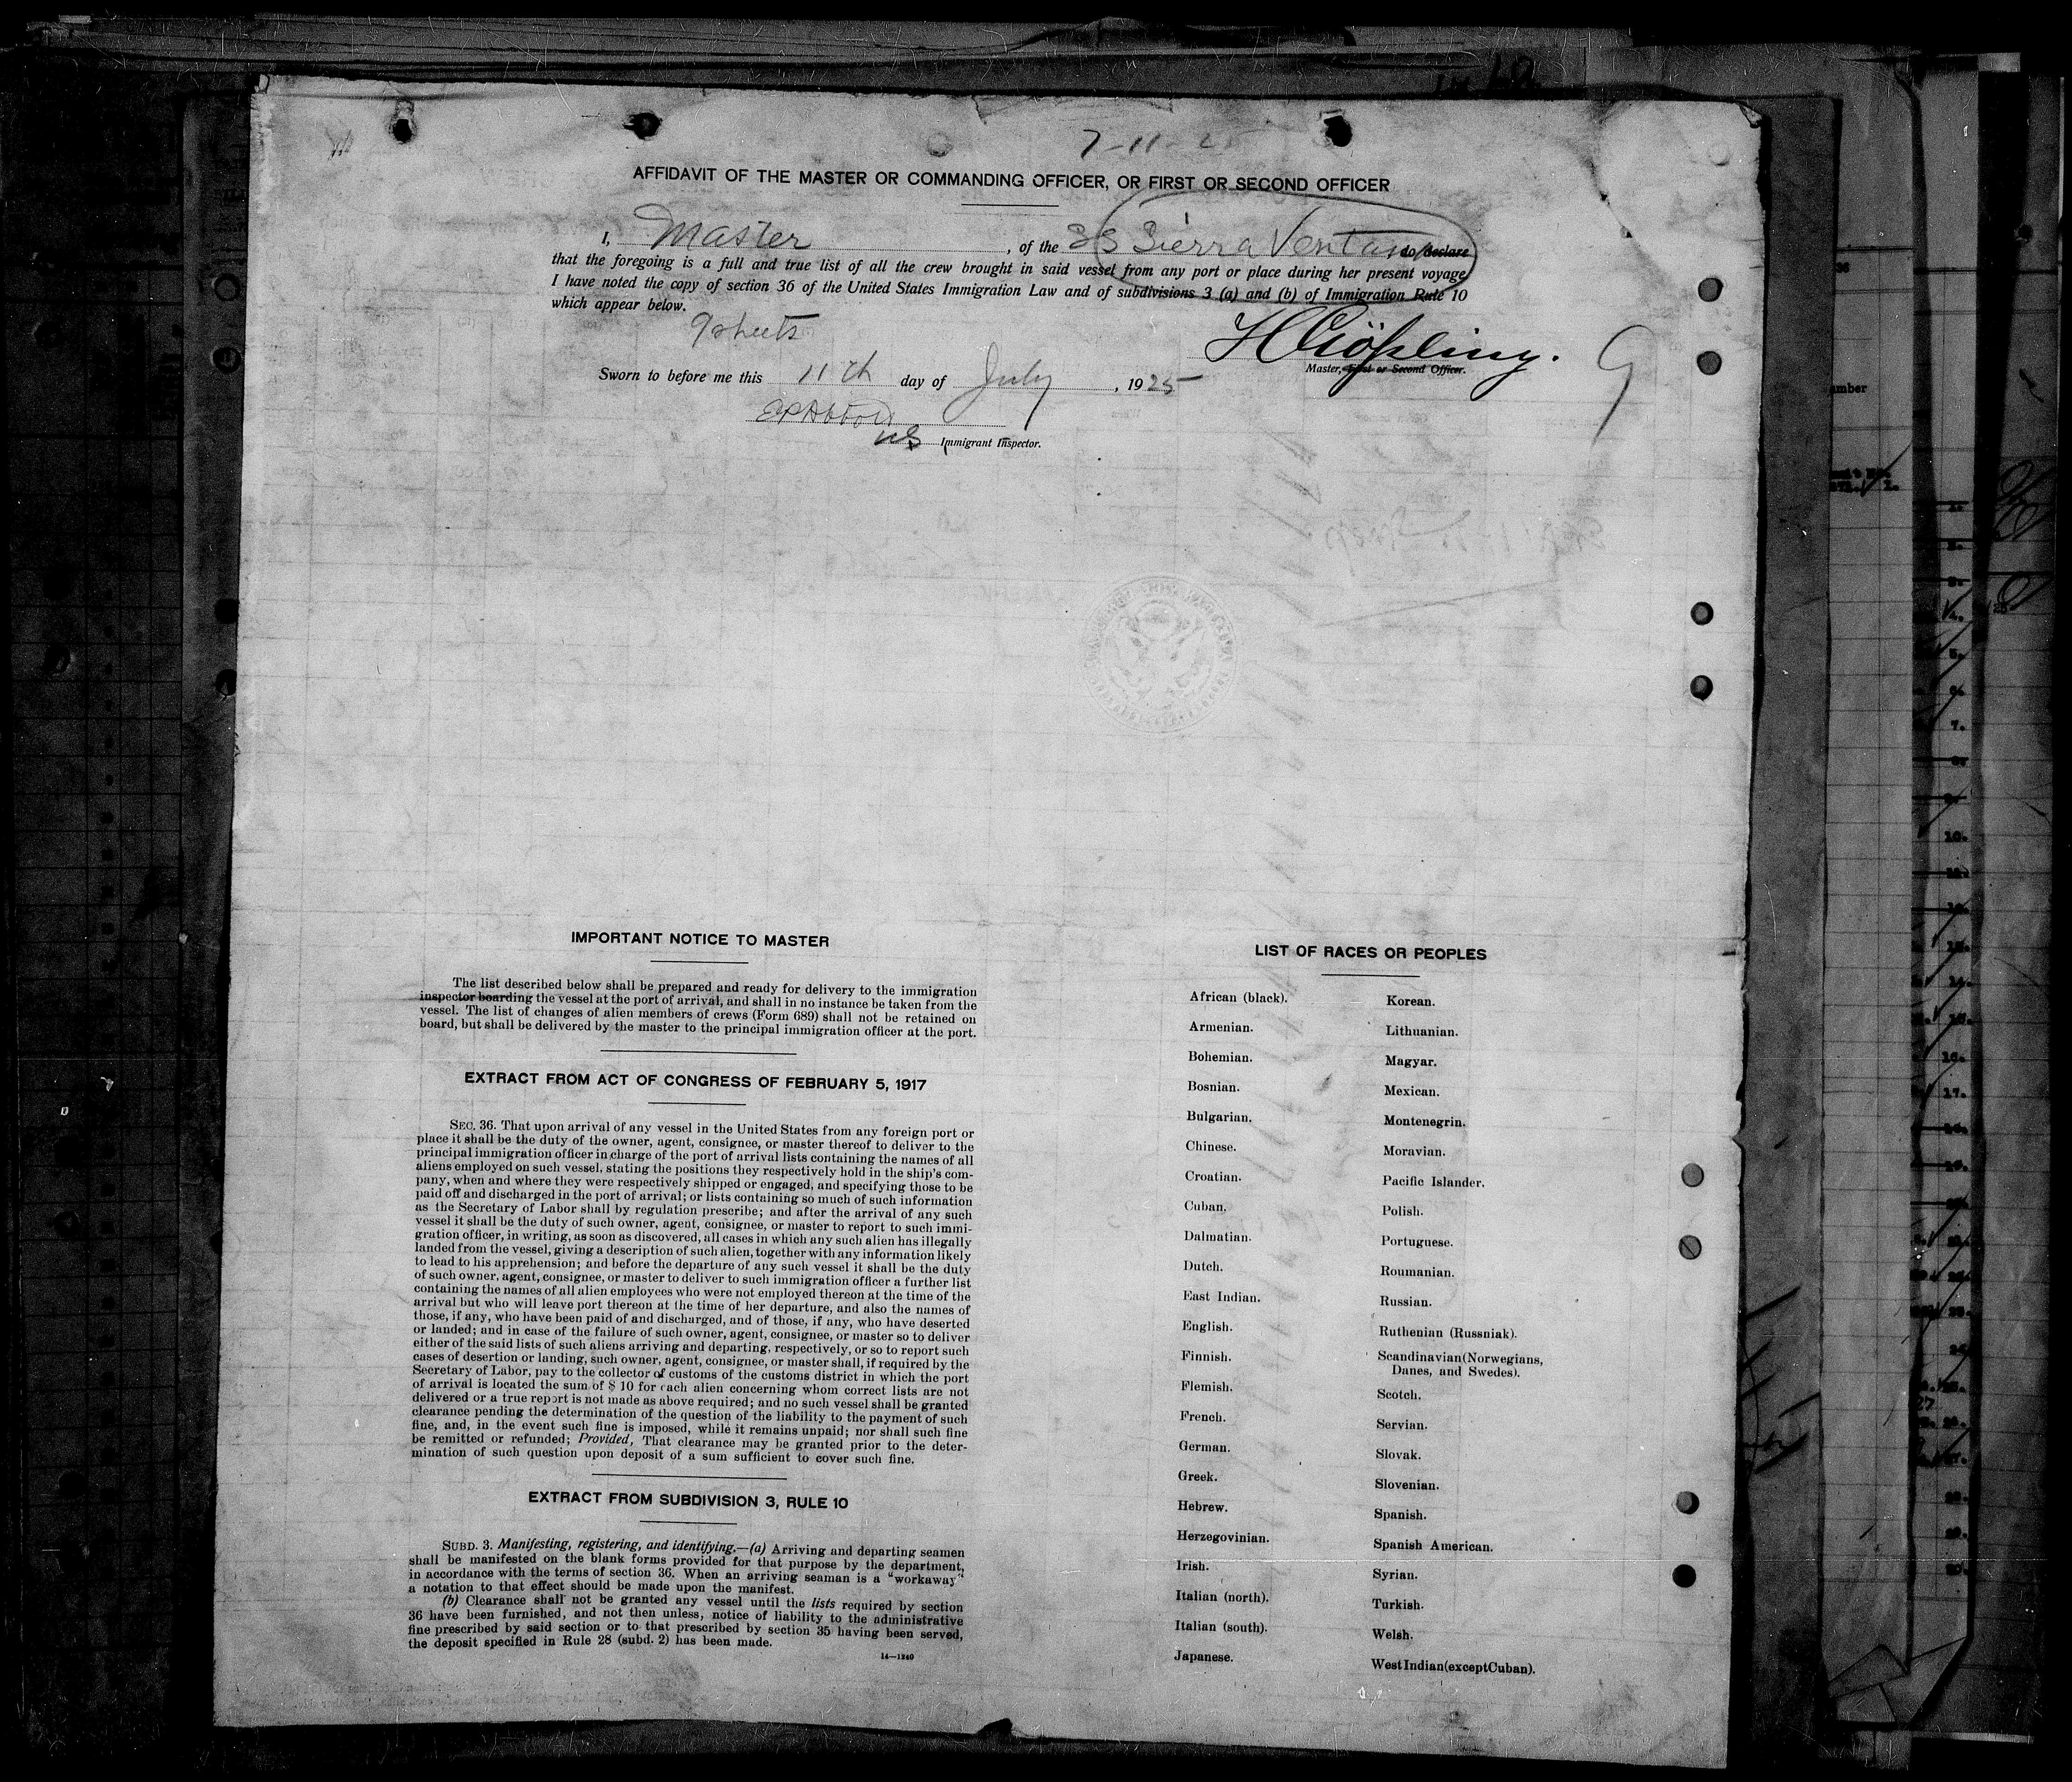 7-11-25
AFFIDAVIT OF THE MASTER OR COMMANDING OFFICER, OR FIRST OR SECOND OFFICER
I, Master, of the SS Sierra Ventana do declare
that the foregoing is a full and true list of all the crew brought in said vessel from any port or place during her present voyage
I have noted the copy of section 36 of the United States Immigration Law and of subdivisions 3 (a) and (b) of Immigration Rule 10
which appear below.
9 sheets
Master, First or Second Officer.
9
Sworn to before me this 11th day of July, 1925
Immigrant Inspector.
IMPORTANT NOTICE TO MASTER
The list described below shall be prepared and ready for delivery to the immigration
inspector boarding the vessel at the port of arrival, and shall in no instance be taken from the
vessel. The list of changes of alien members of crews (Form 689) shall not be retained on
board, but shall be delivered by the master to the principal immigration officer at the port.
EXTRACT FROM ACT OF CONGRESS OF FEBRUARY 5, 1917
SEC. 36. That upon arrival of any vessel in the United States from any foreign port or
place it shall be the duty of the owner, agent, consignee, or master thereof to deliver to the
principal immigration officer in charge of the port of arrival lists containing the names of all
aliens employed on such vessel, stating the positions they respectively hold in the ship's com-
pany, when and where they were respectively shipped or engaged, and specifying those to be
paid off and discharged in the port of arrival; or lists containing so much of such information
as the Secretary of Labor shall by regulation prescribe; and after the arrival of any such
vessel it shall be the duty of such owner, agent, consignee, or master to report to such immi-
gration officer, in writing, as soon as discovered, all cases in which any such alien has illegally
landed from the vessel, giving a description of such alien, together with any information likely
to lead to his apprehension; and before the departure of any such vessel it shall be the duty
of such owner, agent, consignee, or master to deliver to such immigration officer a further list
containing the names of all alien employees who were not employed thereon at the time of the
arrival but who will leave port thereon at the time of her departure, and also the names of
those, if any, who have been paid of and discharged, and of those, if any, who have deserted
or landed; and in case of the failure of such owner, agent, consignee, or master so to deliver
either of the said lists of such aliens arriving and departing, respectively, or so to report such
cases of desertion or landing, such owner, agent, consignee, or master shall, if required by the
Secretary of Labor, pay to the collector of customs of the customs district in which the port
of arrival is located the sum of $ 10 for each alien concerning whom correct lists are not
delivered or a true report is not made as above required; and no such vessel shall be granted
clearance pending the determination of the question of the liability to the payment of such
fine, and, in the event such fine is imposed, while it remains unpaid; nor shall such fine
be remitted or refunded; Provided, That clearance may be granted prior to the deter-
mination of such question upon deposit of a sum sufficient to cover such fine.
EXTRACT FROM SUBDIVISION 3, RULE 10
SUBD. 3. Manifesting, registering, and identifying.—(a) Arriving and departing seamen
shall be manifested on the blank forms provided for that purpose by the department,
in accordance with the terms of section 36. When an arriving seaman is a "workaway"
a notation to that effect should be made upon the manifest.
(b) Clearance shall not be granted any vessel until the lists required by section
36 have been furnished, and not then unless, notice of liability to the administrative
fine prescribed by said section or to that prescribed by section 35 having been served,
the deposit specified in Rule 28 (subd. 2) has been made.
14—1240
LIST OF RACES OR PEOPLES
African (black).
Armenian.
Bohemian.
Bosnian.
Bulgarian.
Chinese.
Croatian.
Cuban.
Dalmatian.
Dutch.
East Indian.
English.
Finnish.
Flemish.
French.
German.
Greek.
Hebrew.
Herzegovinian.
Irish.
Italian (north).
Italian (south).
Japanese.
Korean.
Lithuanian.
Magyar.
Mexican.
Montenegrin.
Moravian.
Pacific Islander.
Polish.
Portuguese.
Roumanian.
Russian.
Ruthenian (Russniak).
Scandinavian(Norwegians,
Danes, and Swedes).
Scotch.
Servian.
Slovak.
Slovenian.
Spanish.
Spanish American.
Syrian.
Turkish.
Welsh.
West Indian(except Cuban).